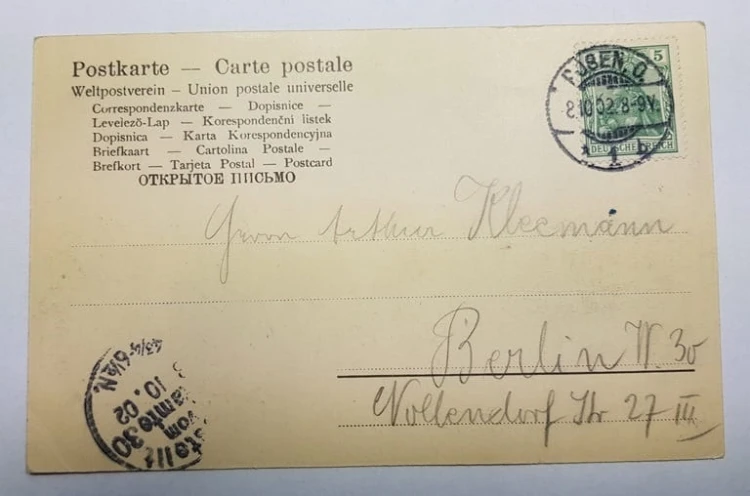 Postkarte — Carte postale
Weltpostverein — Union postale universelle
Correspondenzkarte — Dopisnice —
Levelező-Lap — Korespondenční listek
Dopisnica — Karta Korespondencyjna
Briefkaart — Cartolina Postale —
Brefkort — Tarjeta Postal — Postcard
ОТКРЫТОЕ ПИСЬМО
5
POSEN O.
8.10.02.8-9V.
* 1 b
DEUTSCHES REICH
Herrn Arthur Kleemann
Berlin W. 30
Nollendorf Str 27 III
Bestellt
vom
Postamte 30
10.02
4¾-6½N.